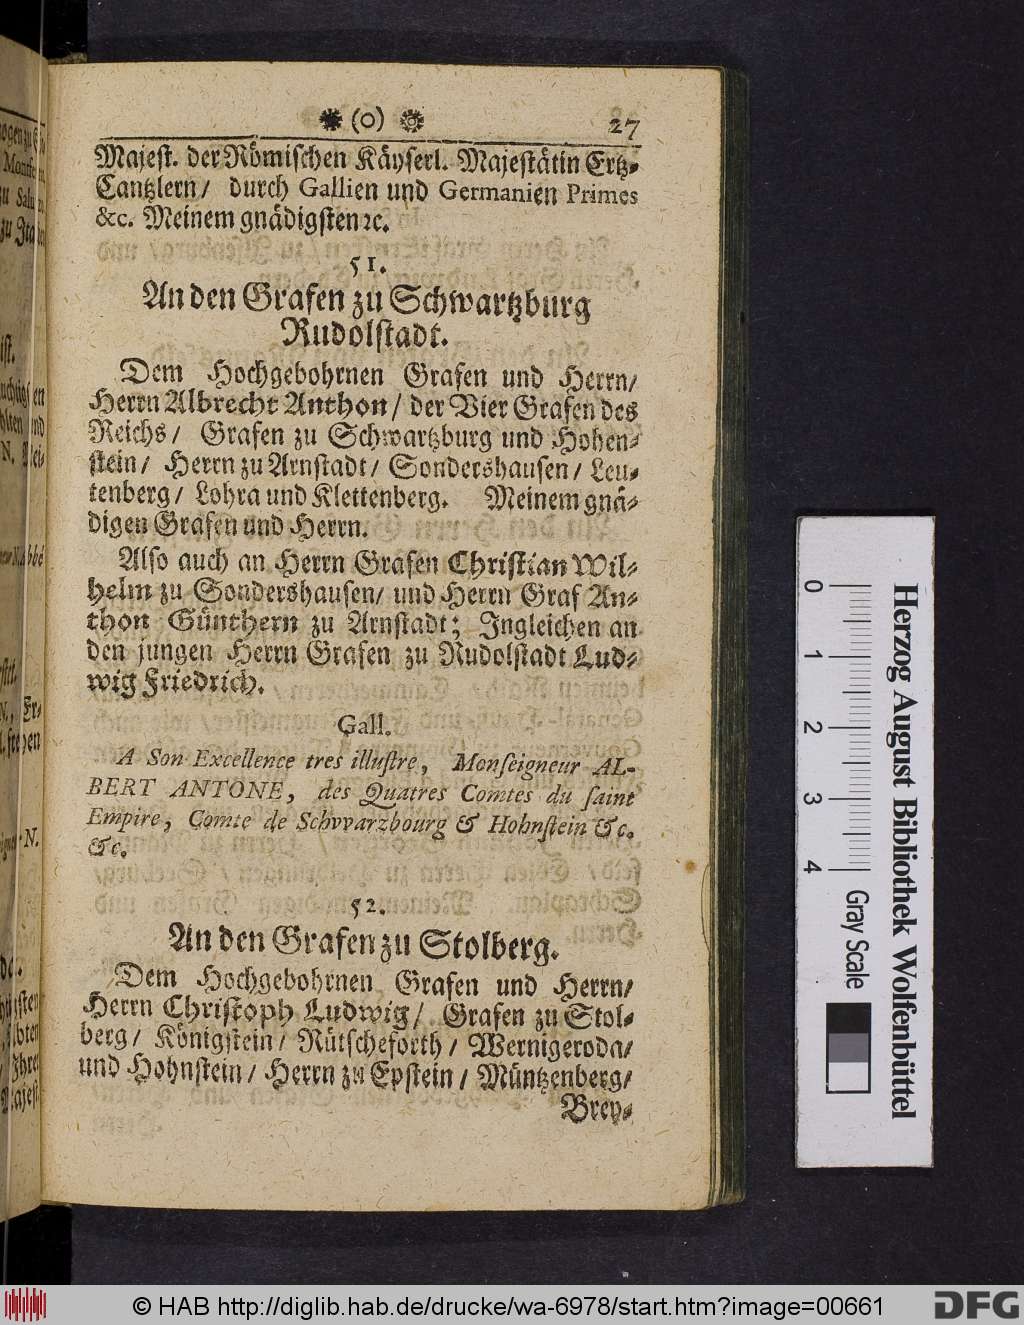 ❋ (o) ❋ 27
Majest. der Römischen Käyserl. Majestätin Ertz-
Cantzlern/ durch Gallien und Germanien Primes
&c. Meinem gnädigsten ꝛc.
51.
An den Grafen zu Schwartzburg
Rudolstadt.
Dem Hochgebohrnen Grafen und Herrn/
Herrn Albrecht Anthon/ der Vier Grafen des
Reichs/ Grafen zu Schwartzburg und Hohen-
stein/ Herrn zu Arnstadt/ Sondershausen/ Leu-
tenberg/ Lohra und Klettenberg. Meinem gnä-
digen Grafen und Herrn.
Also auch an Herrn Grafen Christian Wil-
helm zu Sondershausen/ und Herrn Graf An-
thon Günthern zu Arnstadt; Ingleichen an
den jungen Herrn Grafen zu Rudolstadt Lud-
wig Friedrich.
Gall.
A Son Excellence tres illuſtre, Monſeigneur AL-
BERT ANTONE, des Quatres Comtes du ſaint
Empire, Comte de Schvvarzbourg & Hohnſtein &c.
&c.
52.
An den Grafen zu Stolberg.
Dem Hochgebohrnen Grafen und Herrn/
Herrn Christoph Ludwig/ Grafen zu Stol-
berg/ Königstein/ Rütscheforth/ Wernigeroda/
und Hohnstein/ Herrn zu Epstein/ Müntzenberg/
Brey-
0 1 2 3 4
Gray Scale
Herzog August Bibliothek Wolfenbüttel
© HAB http://diglib.hab.de/drucke/wa-6978/start.htm?image=00661
DFG